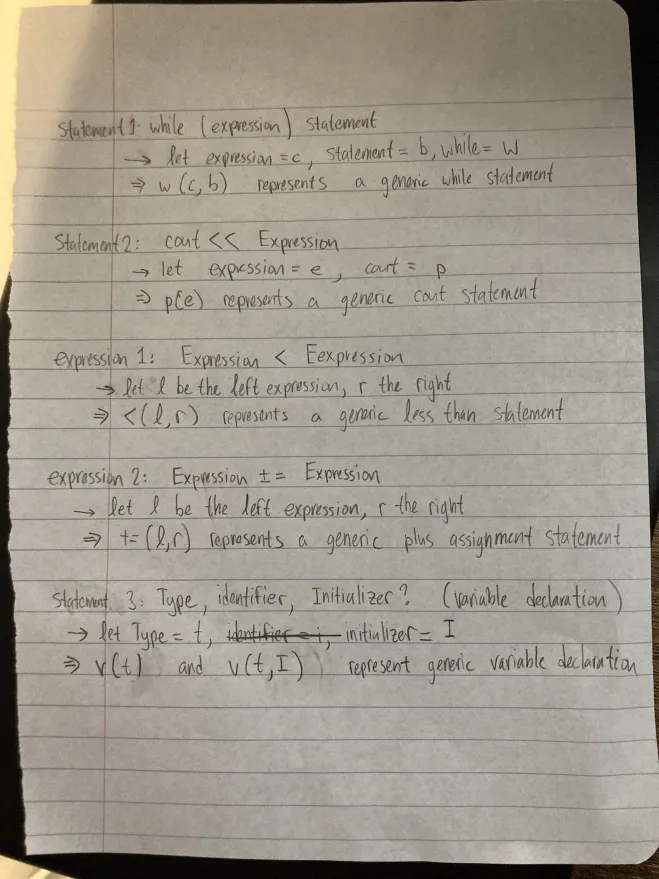 Statement 1: while (expression) statement
→ let expression = c, statement = b, while = w
⇒ w(c, b) represents a generic while statement
Statement 2: cout << Expression
→ let expression = e, cout = p
⇒ p(e) represents a generic cout statement
expression 1: Expression < Eexpression
→ let l be the left expression, r the right
⇒ <(l, r) represents a generic less than statement
expression 2: Expression += Expression
→ let l be the left expression, r the right
⇒ +=(l,r) represents a generic plus assignment statement
Statement 3: Type, identifier, Initializer? (variable declaration)
→ let Type = t, identifier = i, initializer = I
⇒ v(t) and v(t, I) represent generic variable declaration